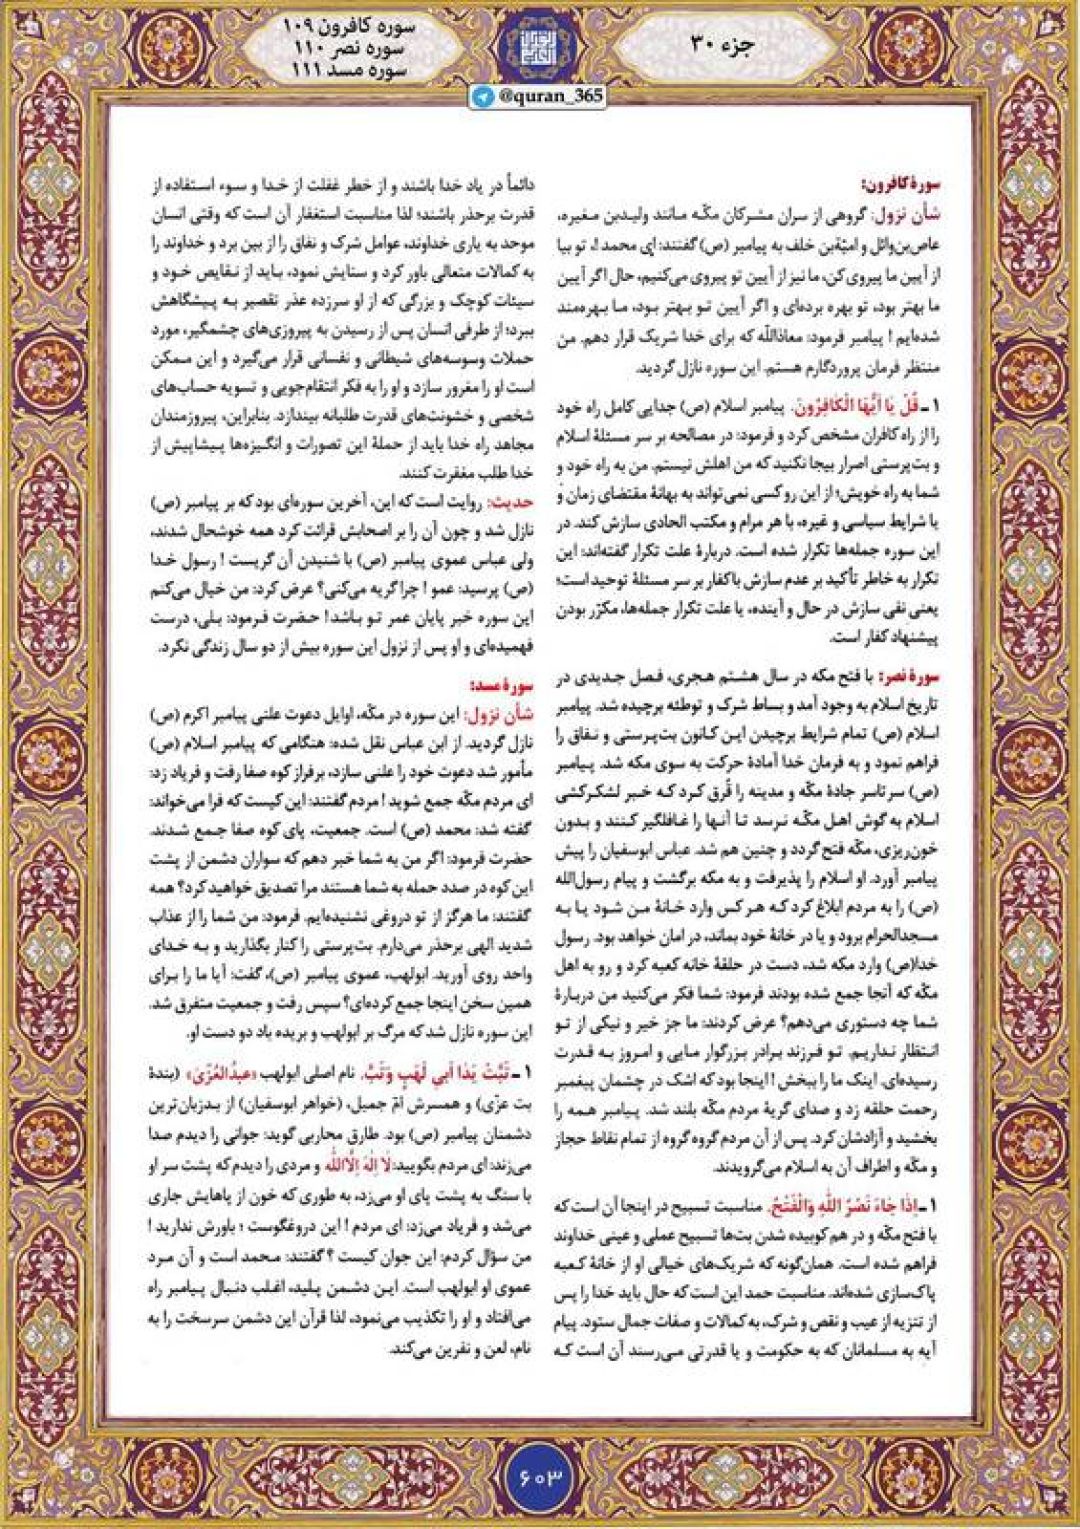 سوره کافرون ۱۰۹
سوره نصر ۱۱۰
سوره مسد ۱۱۱
جزء ۳۰
@quran_365
سورهٔ کافرون:
شأن نزول: گروهی از سران مشرکان مکّه مـانند ولیدبن مـغیره،
عاص‌بن‌وائل و امیّةبن خلف به پیامبر (ص) گفتند: ای محمد !، تو بیا
از آیین ما پیروی کن، ما نیز از آیین تو پیروی می‌کنیم، حال اگر آیین
ما بهتر بود، تو بهره برده‌ای و اگر آیین تـو بهتر بـود، مـا بـهره‌مند
شده‌ایم ! پیامبر فرمود: معاذاللّه که برای خدا شریک قرار دهم. من
منتظر فرمان پروردگارم هستم. این سوره نازل گردید.
۱ ـ قُلْ یَا اَیُّهَا الْکَافِرُونَ. پیامبر اسلام (ص) جدایی کامل راه خود
را از راه کافران مشخص کرد و فرمود: در مصالحه بر سر مسئلهٔ اسلام
و بت‌پرستی اصرار بیجا نکنید که من اهلش نیستم. من به راه خود و
شما به راه خویش؛ از این رو کسی نمی‌تواند به بهانهٔ مقتضای زمان و
یا شرایط سیاسی و غیره، با هر مرام و مکتب الحادی سازش کند. در
این سوره جمله‌ها تکرار شده است. دربارهٔ علت تکرار گفته‌اند: این
تکرار به خاطر تأکید بر عدم سازش باکفار بر سر مسئلهٔ توحید است؛
یعنی نفی سازش در حال و آینده، یا علت تکرار جمله‌ها، مکرّر بودن
پیشنهاد کفار است.
سورهٔ نصر: با فتح مکه در سال هشتم هجری، فصل جـدیدی در
تاریخ اسلام به وجود آمد و بساط شرک و توطئه برچیده شد. پیامبر
اسلام (ص) تمام شرایط برچیدن ایـن کـانون بت‌پرستی و نـفاق را
فراهم نمود و به فرمان خدا آمادهٔ حرکت به سوی مکه شد. پـیامبر
(ص) سرتاسر جادهٔ مکّه و مدینه را قُرق کـرد کـه خـبر لشکرکشی
اسلام به گوش اهـل مکّـه نـرسد تـا آنـها را غـافلگیر کـنند و بـدون
خون‌ریزی، مکّه فتح گردد و چنین هم شد. عباس ابوسفیان را پیش
پیامبر آورد. او اسلام را پذیرفت و به مکه برگشت و پیام رسول‌الله
(ص) را به مردم ابلاغ کرد کـه هـر کس وارد خـانهٔ مـن شـود یـا بـه
مسجدالحرام برود و یا در خانهٔ خود بماند، در امان خواهد بود. رسول
خدا(ص) وارد مکه شد، دست در حلقهٔ خانه کعبه کرد و رو به اهل
مکّه که آنجا جمع شده بودند فرمود: شما فکر می‌کنید من دربـارهٔ
شما چه دستوری می‌دهم؟ عرض کردند: ما جز خیر و نیکی از تـو
انتظار نداریم. تو فرزند برادر بزرگوار مـایی و امـروز بـه قـدرت
رسیده‌ای. اینک ما را ببخش ! اینجا بود که اشک در چشمان پیغمبر
رحمت حلقه زد و صدای گریهٔ مردم مکّه بلند شد. پیامبر همه را
بخشید و آزادشان کرد. پس از آن مردم گروه گروه از تمام نقاط حجاز
و مکّه و اطراف آن به اسلام می‌گرویدند.
۱ ـ اِذَا جَاءَ نَصْرُ اللّٰهِ وَالْفَتْحُ. مناسبت تسبیح در اینجا آن است که
با فتح مکّه و در هم کوبیده شدن بت‌ها تسبیح عملی و عینی خداوند
فراهم شده است. همان‌گونه که شریک‌های خیالی او از خانهٔ کـعبه
پاک‌سازی شده‌اند. مناسبت حمد این است که حال باید خدا را پس
از تنزیه از عیب و نقص و شرک، به کمالات و صفات جمال ستود. پیام
آیه به مسلمانان که به حکومت و یا قدرتی مـی‌رسند آن است کـه
دائماً در یاد خدا باشند و از خطر غفلت از خـدا و سـوء اسـتفاده از
قدرت برحذر باشند؛ لذا مناسبت استغفار آن است که وقتی انسان
موحد به یاری خداوند، عوامل شرک و نفاق را از بین برد و خداوند را
به کمالات متعالی باور کرد و ستایش نمود، بـاید از نـقایص خـود و
سیئات کوچک و بزرگی که از او سرزده عذر تقصیر بـه پـیشگاهش
ببرد؛ از طرفی انسان پس از رسیدن به پیروزی‌های چشمگیر، مورد
حملات وسوسه‌های شیطانی و نفسانی قرار می‌گیرد و این مـمکن
است او را مغرور سازد و او را به فکر انتقام‌جویی و تسویه حساب‌های
شخصی و خشونت‌های قدرت طلبانه بیندازد. بنابراین، پیروزمندان
مجاهد راه خدا باید از حملهٔ این تصورات و انگیزه‌ها پـیشاپیش از
خدا طلب مغفرت کنند.
حدیث: روایت است که این، آخرین سوره‌ای بود که بر پیامبر (ص)
نازل شد و چون آن را بر اصحابش قرائت کرد همه خوشحال شدند،
ولی عباس عموی پیامبر (ص) با شنیدن آن گریست ! رسول خـدا
(ص) پرسید: عمو ! چرا گریه می‌کنی؟ عرض کرد: من خیال می‌کنم
این سوره خبر پایان عمر تـو بـاشد! حـضرت فـرمود: بـلی، درست
فهمیده‌ای و او پس از نزول این سوره بیش از دو سال زندگی نکرد.
سورهٔ مسد:
شأن نزول: این سوره در مکّه، اوایل دعوت علنی پیامبر اکرم (ص)
نازل گردید. از ابن عباس نقل شده: هنگامی که پیامبر اسلام (ص)
مأمور شد دعوت خود را علنی سازد، برفراز کوه صفا رفت و فریاد زد:
ای مردم مکّه جمع شوید ! مردم گفتند: این کیست که فرا می‌خواند:
گفته شد: محمد (ص) است. جمعیت، پای کوه صفا جـمع شـدند.
حضرت فرمود: اگر من به شما خبر دهم که سواران دشمن از پشت
این کوه در صدد حمله به شما هستند مرا تصدیق خواهید کرد؟ همه
گفتند: ما هرگز از تو دروغی نشنیده‌ایم. فرمود: من شما را از عذاب
شدید الهی برحذر می‌دارم. بت‌پرستی را کنار بگذارید و بـه خـدای
واحد روی آورید. ابولهب، عموی پیامبر (ص)، گفت: آیا ما را بـرای
همین سخن اینجا جمع کرده‌ای؟ سپس رفت و جمعیت متفرق شد.
این سوره نازل شد که مرگ بر ابولهب و بریده باد دو دست او.
۱ ـ تَبَّتْ یَدَا اَبِی لَهَبٍ وَتَبَّ. نام اصلی ابولهب «عبدُالعُزّیٰ» (بندهٔ
بت عزّی) و همسرش امّ جمیل، (خواهر ابوسفیان) از بـدزبان‌ترین
دشمنان پیامبر (ص) بود. طارق محاربی گوید: جوانی را دیدم صدا
می‌زند: ای مردم بگویید: لَا اِلٰهَ اِلَّااللّٰه و مردی را دیدم که پشت سر او
با سنگ به پشت پای او می‌زد، به طوری که خون از پاهایش جاری
می‌شد و فریاد می‌زد: ای مردم ! این دروغگوست ؛ باورش ندارید !
من سؤال کردم: این جوان کیست ؟ گفتند: محمد است و آن مـرد
عموی او ابولهب است. ایـن دشـمن پـلید، اغـلب دنـبال پـیامبر راه
می‌افتاد و او را تکذیب می‌نمود، لذا قرآن این دشمن سرسخت را به
نام، لعن و نفرین می‌کند.
۶۰۳